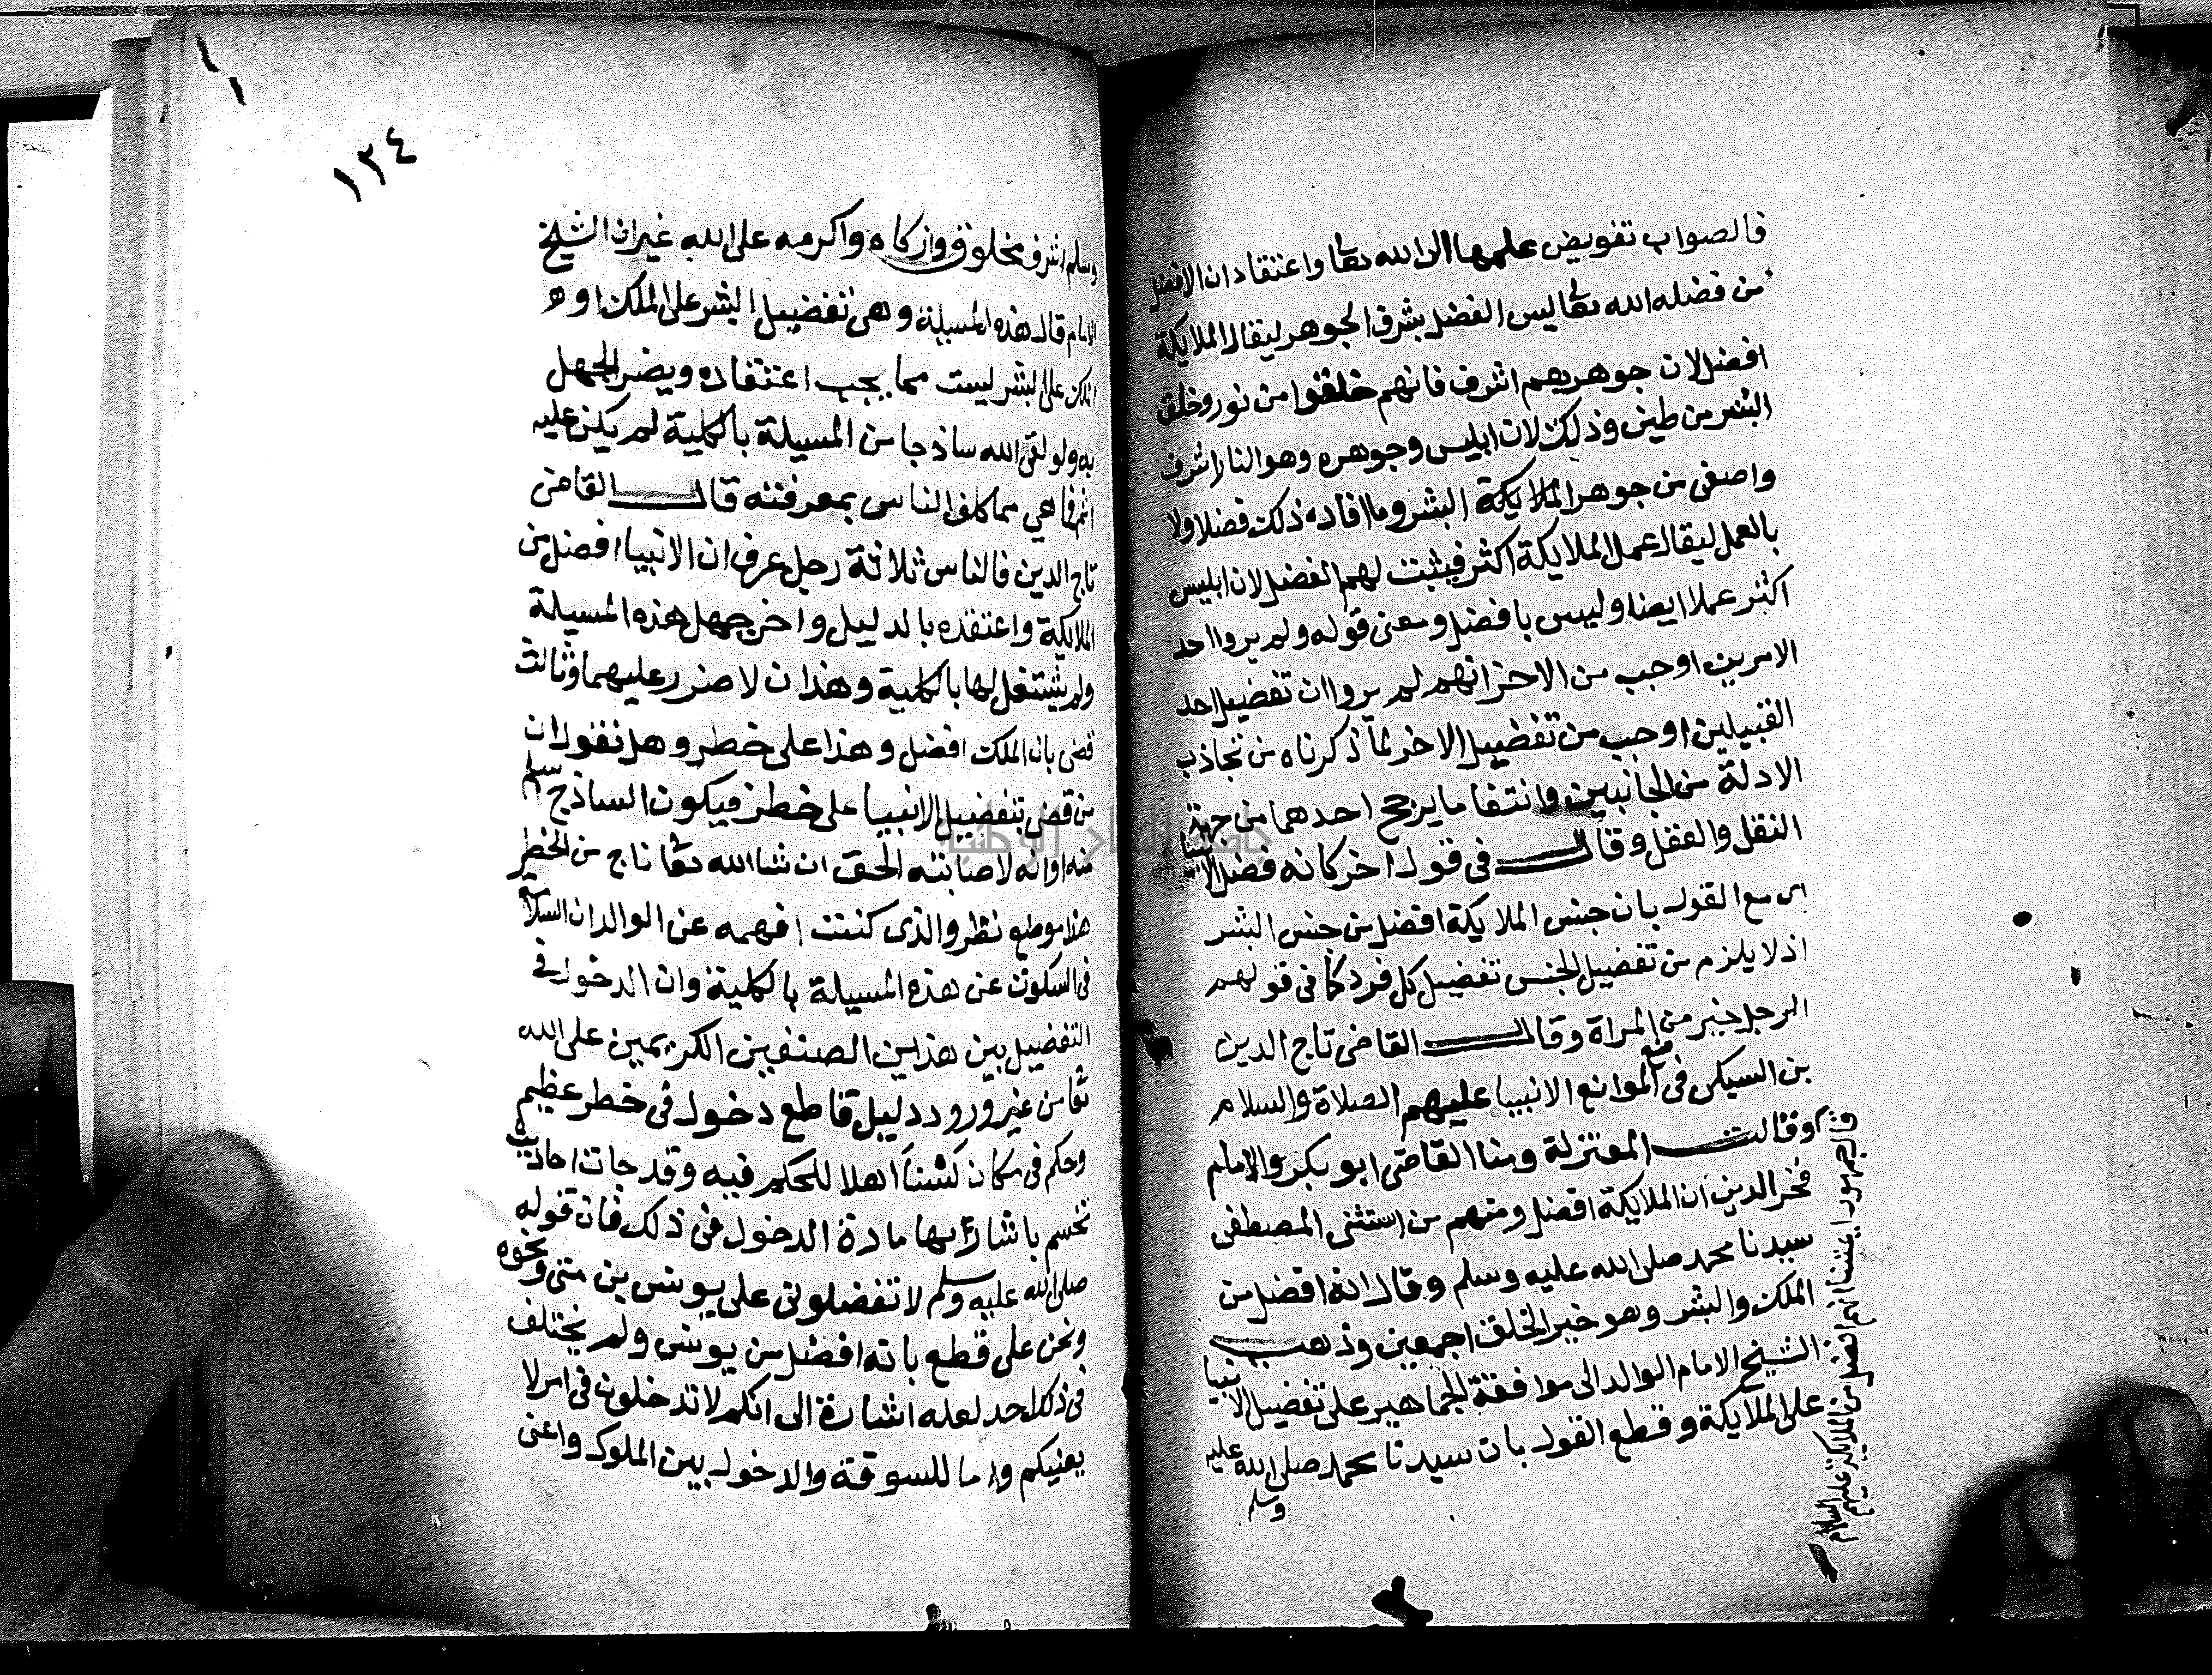 فالصواب تفويض علمها الى الله تعا واعتقاد ان الافضل
من فضله الله تعا ليس الفضل بشرف الجوهر ليقال الملايكة
افضل لان جوهرهم اشرف فانهم خلقوا من نور وخلق
البشر من طين وذلك لان ابليس وجوهره وهو النار اشرف
واصفى من جوهر الملايكة البشر وما افاده ذلك فضلا ولا
بالعمل ليقال عمل الملايكة اكثر فيثبت لهم الفضل لان ابليس
اكثر عملا ايضا وليس بافضل ومعنى قوله ولم يروا احد
الامرين اوجب من الاخر انهم لم يروا ان تفضيل احد
القبيلين اوجب من تفضيل الاخر لما ذكرناه من تجاذب
الادلة من الجانبين وانتفا ما يرجح احدهما من جهة
النقل والعقل وقال في قول اخر كانه فضل الانبيا
مع القول بان جنس الملايكة افضل من جنس البشر
اذ لا يلزم من تفضيل الجنس تفضيل كل فرد كما في قولهم
الرجل خير من المراة وقال القاضى تاج الدين
بن السبكى فى منع الموانع الانبيا عليهم الصلاة والسلام
وقالت المعتزلة ومنا القاضى ابو بكر والامام
فخر الدين ان الملايكة افضل ومنهم من استثنى المصطفى
سيدنا محمد صلى الله عليه وسلم وقال انه افضل من
الملك والبشر وهو خير الخلق اجمعين وذهب
الشيخ الامام الوالد الى موافقة الجماهير على تفضيل الانبيا
على الملايكة وقطع القول بان سيدنا محمد صلى الله عليه
وسلم
قال جمهور ايمتنا انهم افضل من الملايكة عليهم السلام
١٢٤
وسلم اشرف مخلوق وازكاه واكرمه على الله غير ان الشيخ
الامام قال هذه المسيلة وهي تفضيل البشر على الملك او
الملك على البشر ليست مما يجب اعتقاده ويضر الجهل
به ولو لقى الله ساذجا من المسيلة بالكلية لم يكن عليه
اثم فما هي مما كلف الناس بمعرفته قال القاضى
تاج الدين فالناس ثلاثة رجل عرف ان الانبيا افضل من
الملايكة واعتقده بالدليل واخر جهل هذه المسيلة
ولم يشتغل بها بالكلية وهذان لا ضرر عليهما وثالث
قضى بان الملك افضل وهذا على خطر وهل نقول ان
من قضى بتفضيل الانبيا على خطر فيكون الساذج اسلم
منه او انه لاصابته الحق ان شا الله تعا ناج من الخطر
هذا موضع نظر والذى كنت افهمه عن الوالد ان السلامة
فى السكوت عن هذه المسيلة بالكلية وان الدخول فى
التفضيل بين هذين الصنفين الكريمين على الله
تعا من غير ورود دليل قاطع دخول فى خطر عظيم
وحكم فى مكان لسنا اهلا للحكم فيه وقد جات احاديث
تحسم باشارتها مادة الدخول فى ذلك فان قوله
صلى الله عليه وسلم لا تفضلونى على يونس بن متى ونحوه
ونحن على قطع بانه افضل من يونس ولم يختلف
فى ذلك احد لعله اشارة الى انكم لا تدخلون فى امر لا
يعنيكم وما للسوقة والدخول بين الملوك واعنى